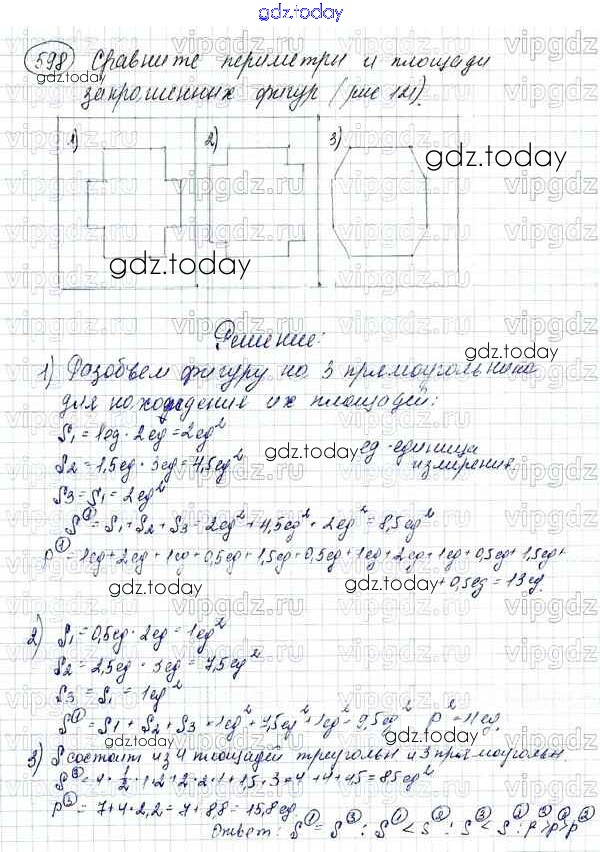 gdz.today
598 Сравните периметры и площади
запрошенных фигур (рис 121).
1) 2) 3)
gdz.today
gdz.today
Решение:
gdz.today
1) Разобьем фигуру на 3 прямоугольника
для нахождения их площадей:
S₁ = 1ед · 2ед = 2ед²
S₂ = 1,5ед · 3ед = 4,5ед² gdz.today ед - единица
измерения.
S₃ = S₁ = 2ед²
S① = S₁ + S₂ + S₃ = 2ед² + 4,5ед² + 2ед² = 8,5ед²
P① = 1ед + 2ед + 1ед + 0,5ед + 1,5ед + 0,5ед + 1ед + 2ед + 1ед + 0,5ед + 1,5ед +
gdz.today gdz.today + 0,5ед = 13ед.
2) S₁ = 0,5ед · 2ед = 1ед²
S₂ = 2,5ед · 3ед = 7,5ед²
gdz.today
S₃ = S₁ = 1ед²
S① = S₁ + S₂ + S₃ = 1ед² + 7,5ед² + 1ед² = 9,5ед² P² = 11ед.
gdz.today
3) S состоит из 4 площадей треугольн и 3 прямоугольн.
gdz.today
P③ = 7 + 4 · 2,2 = 7 + 8,8 = 15,8ед
Ответ: